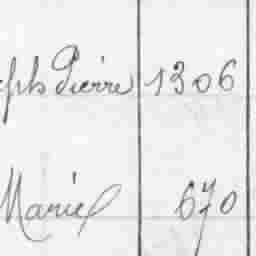 eph Pierre 1306
Marie 670